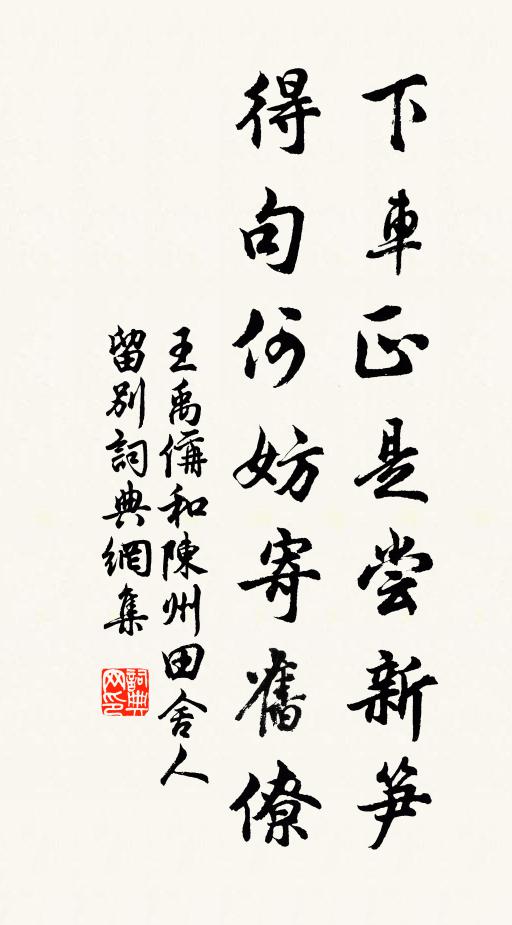 下車正是尝新笋
得句何妨寄舊僚
王禹偁和陳州田舍人
留別詞典網集
詞典网印